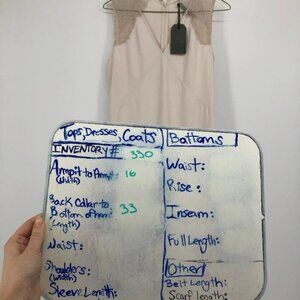 Tops, Dresses, Coats
INVENTORY# 330
Armpit to Armpit: 16
(Width)
Back Collar to
Bottom of hem: 33
(Length)
Waist:
Shoulders:
(Width)
Sleeve Length:
Bottoms
Waist:
Rise:
Inseam:
Full Length:
Other
Belt Length:
Scarf Length: